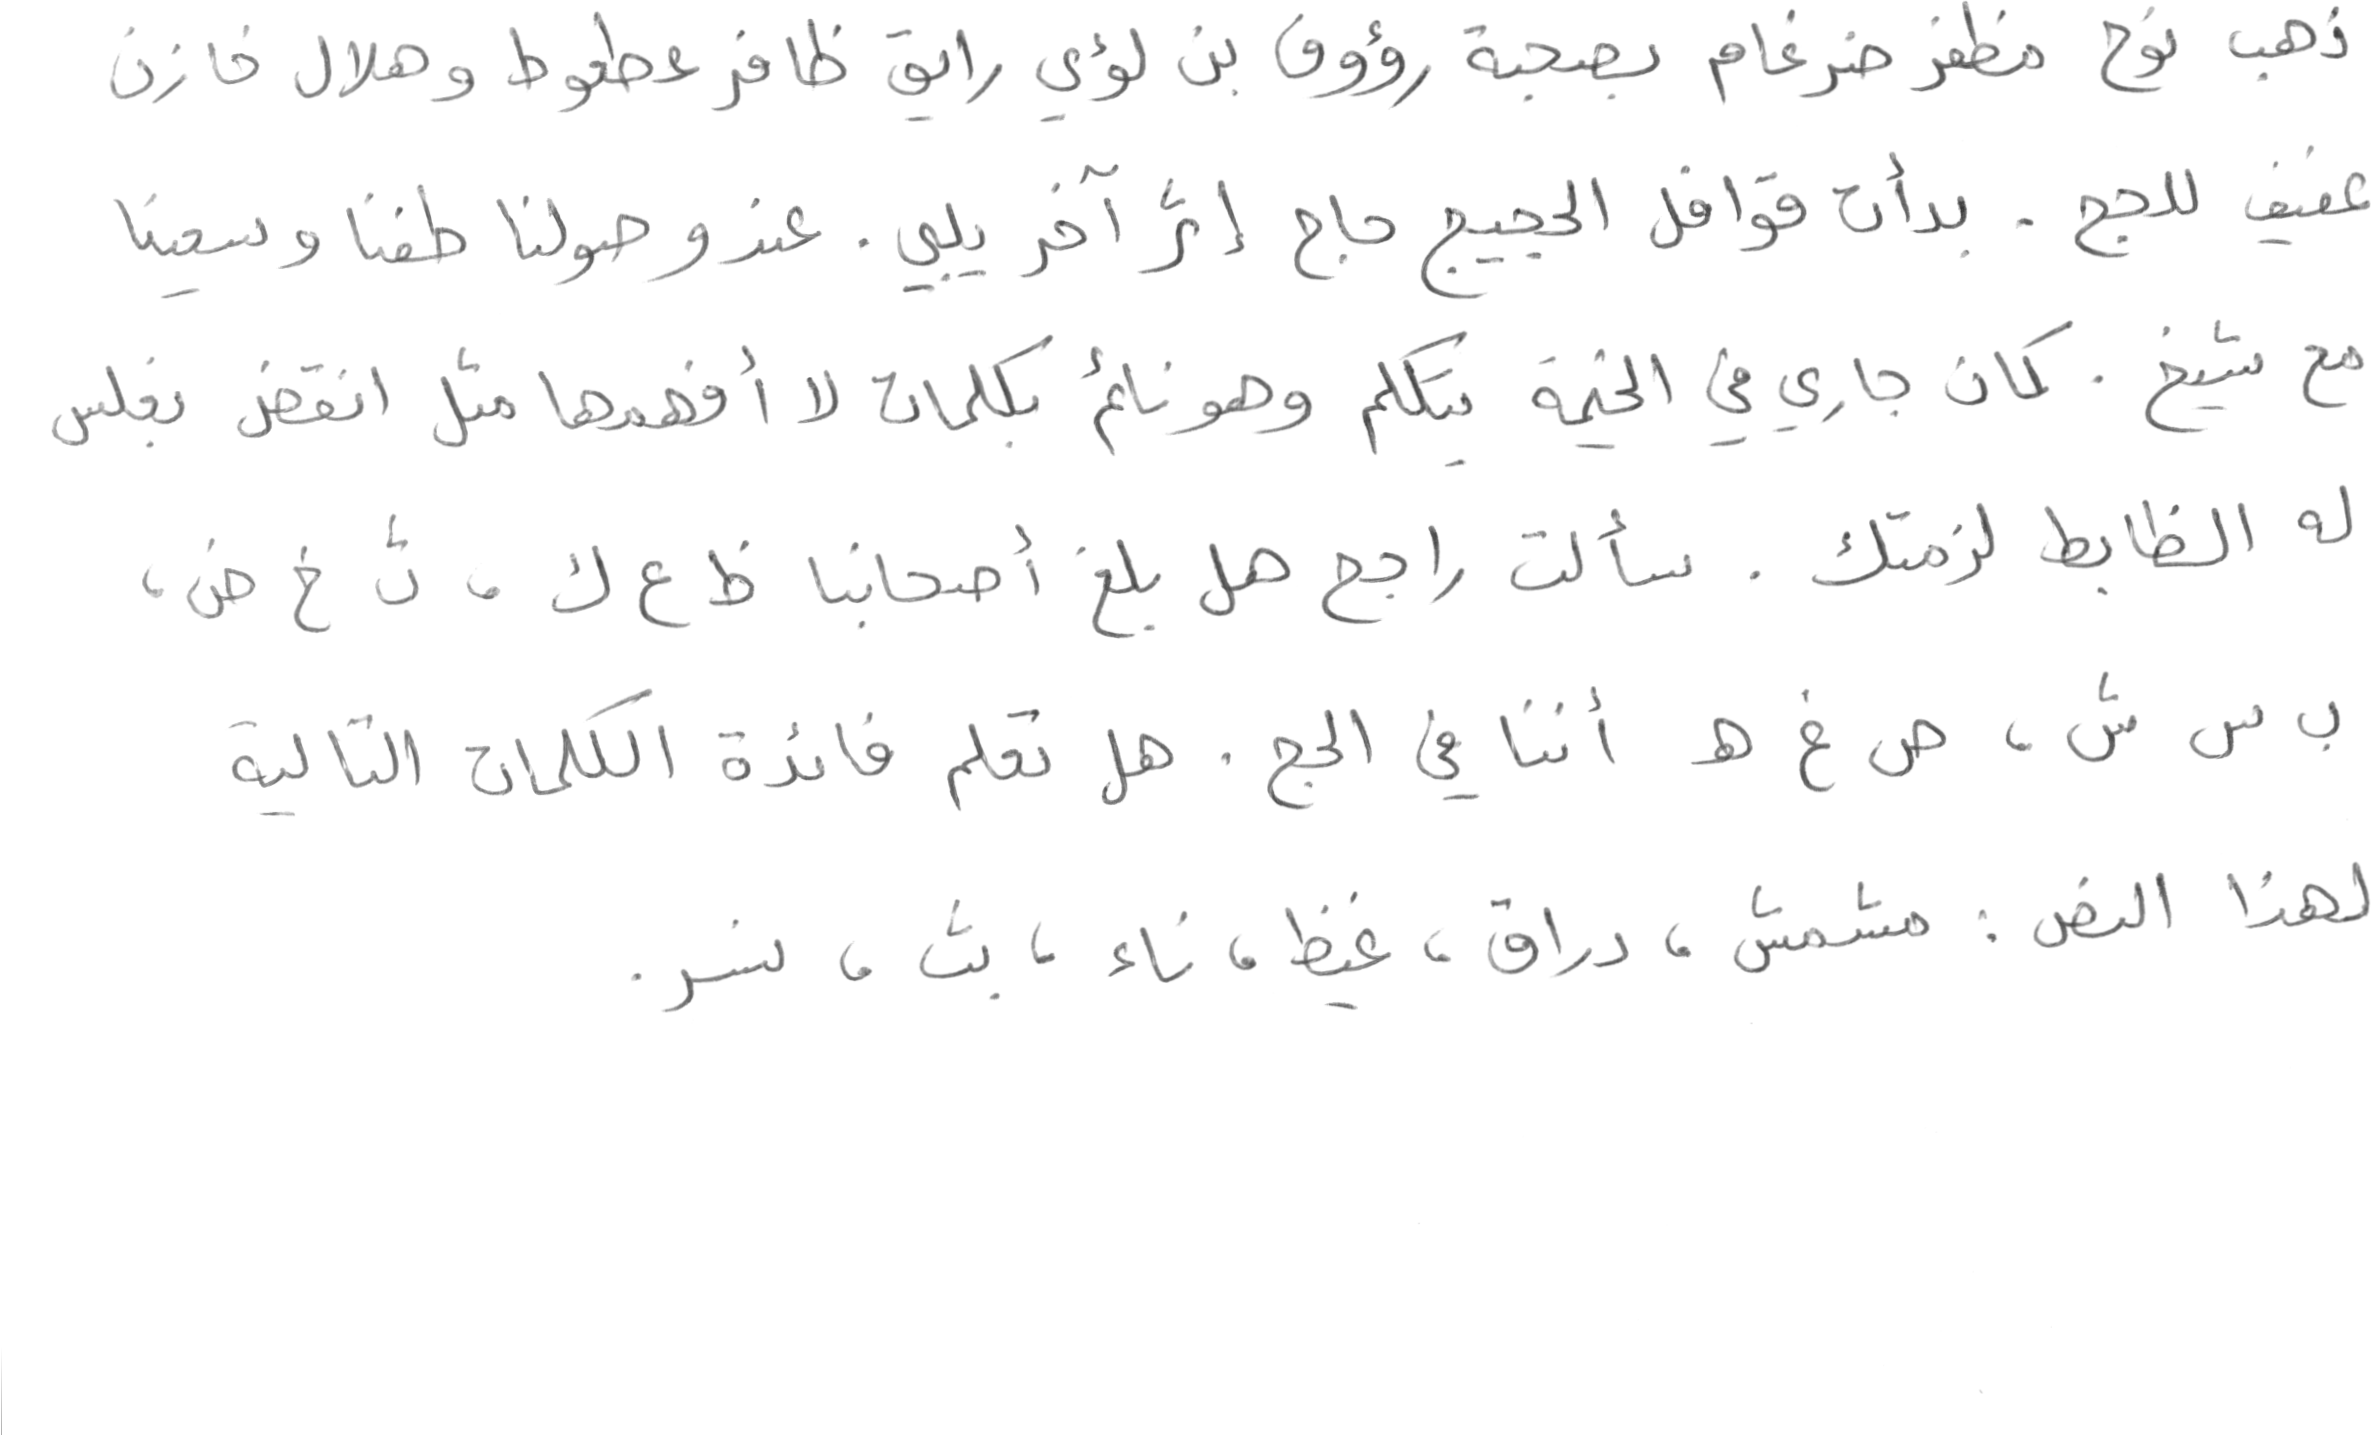 ذهب نوح مظفر ضرغام بصحبة رؤوف بن لؤي رايق ظافر عطعوط وهلال خازن
عفيف للحج . بدأت قوافل الحجيج حاج إثر آخر يلبي . عند وصولنا طفنا وسعينا
مع شيخ . كان جاري في الخيمة يتكلم وهو نائم بكلمات لا أفهمها مثل انقض بغلس
له الظابط لزمتك . سألت راجح هل بلغ أصحابنا ظ ع ك ، ث خ ض ،
ب س ش ، ص غ هـ أننا في الحج . هل تعلم فائدة الكلمات التالية
لهذا النص : مشمش ، دراق ، غيظ ، ناء ، بث ، نسر .